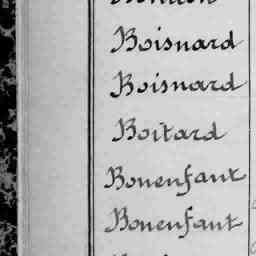 Boisnard
Boisnard
Boitard
Bonenfant
Bonenfant